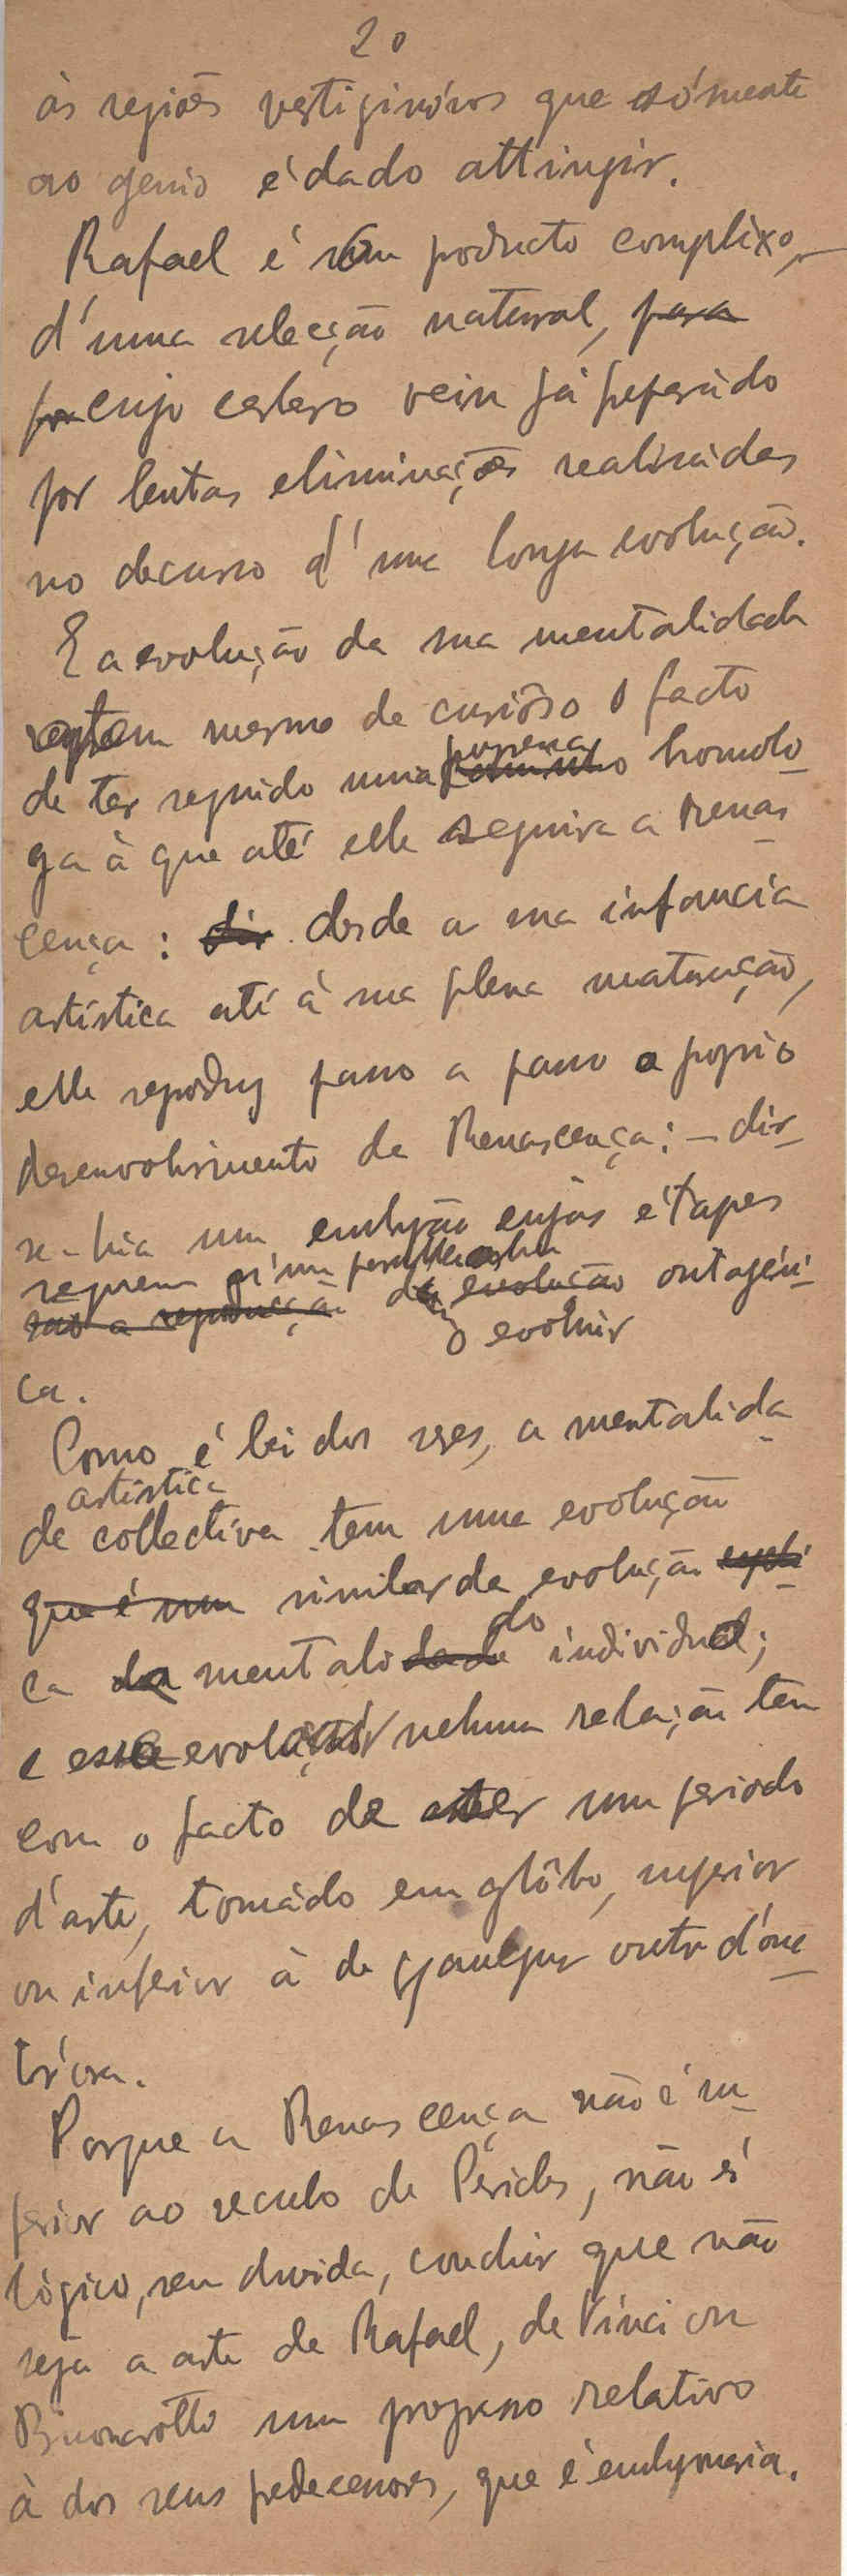 20
ás regiões vertiginósas que sómente
ao genio é dado attingir.
Rafael é um producto complexo,
d'uma selecção natural, para
por cujo cerbero vein já preparádo
por lentas eliminações realisádas
no decurso d'uma longa evolução.
E a evolução da sua mentalidade
tem mesmo de curiôso o facto
de ter seguido uma homolo-
ga à que até elle seguira a Renas-
cença: desde a sua infancia
artística até à sua plena maturação,
elle reproduz passo a passo o proprio
desenvolvimento da Renascença: – dir-
se-hia um embryão cujas étapes
seguem n'um
sao a reproducção da evolução ontogéni-
evoluir
ca.
Como é lei dos seres, a mentalida-
artistica
de collectiva tem uma evolução
que é uma similar da evolução
ca da mentalidade do individual;
e essa nehuma relação tem
com o facto de ser um periodo
d'arte, tomádo em glôbo, superior
ou inferior à de qualquer outro d'ou-
tr'ora.
Porque a Renascença não é su-
perior ao seculo de Péricles, não é
lógico, sem duvida, concluir que não
seja a arte de Rafael, de Vinci ou
Buonarotto um progresso relativo
à dos seus predecessores, que é embryonaria.